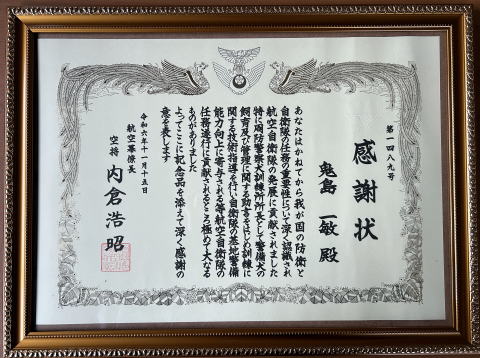 第一四八九号
感謝状
鬼島 一敏 殿
あなたはかねてから我が国の防衛と
自衛隊の任務の重要性について深く認識され
航空自衛隊の発展に貢献されました
特に周防警察犬訓練所所長として警備犬の
飼育及び管理に関する助言をはじめ訓練に
関する技術指導を行い自衛隊の基地警備
能力向上に寄与される等航空自衛隊の
任務遂行に貢献されるところ極めて大なる
ものがありました
よってここに記念品を添えて深く感謝の
意を表します
令和六年十一月十五日
航空幕僚長
空将 内倉浩昭